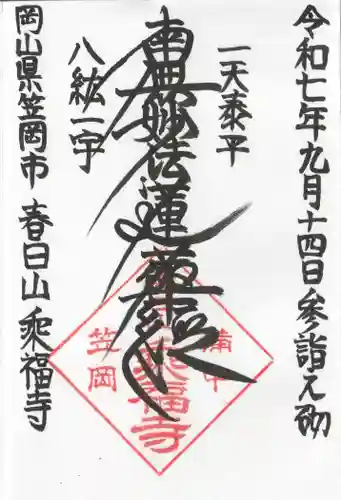 令和七年九月十四日参詣之砌
一天泰平
南無妙法蓮華経
八紘一宇
岡山県笠岡市 春日山 乗福寺
備中
乗福寺
笠岡